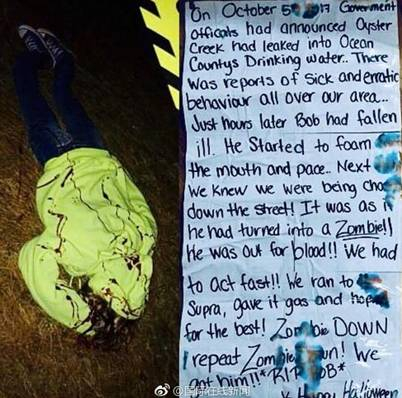 On October 5 17 Government
Officals had announced Oyster
Creek had leaked into Ocean
Countys Drinking water.. There
was reports of sick and erratic
behaviour all over our area...
Just hours later Bob had fallen
ill. He Started to foam
the mouth and pace.. Next
We knew we were being
down the street! It was as
he had turned into a Zombie!!
He was out for blood!! We had
to act fast!! We ran to
Supra, gave it gas and
for the best! Zombie DOWN
I repeat Zombie We
got him!! *RIP BOB*
Happy Halloween
@国际在线新闻